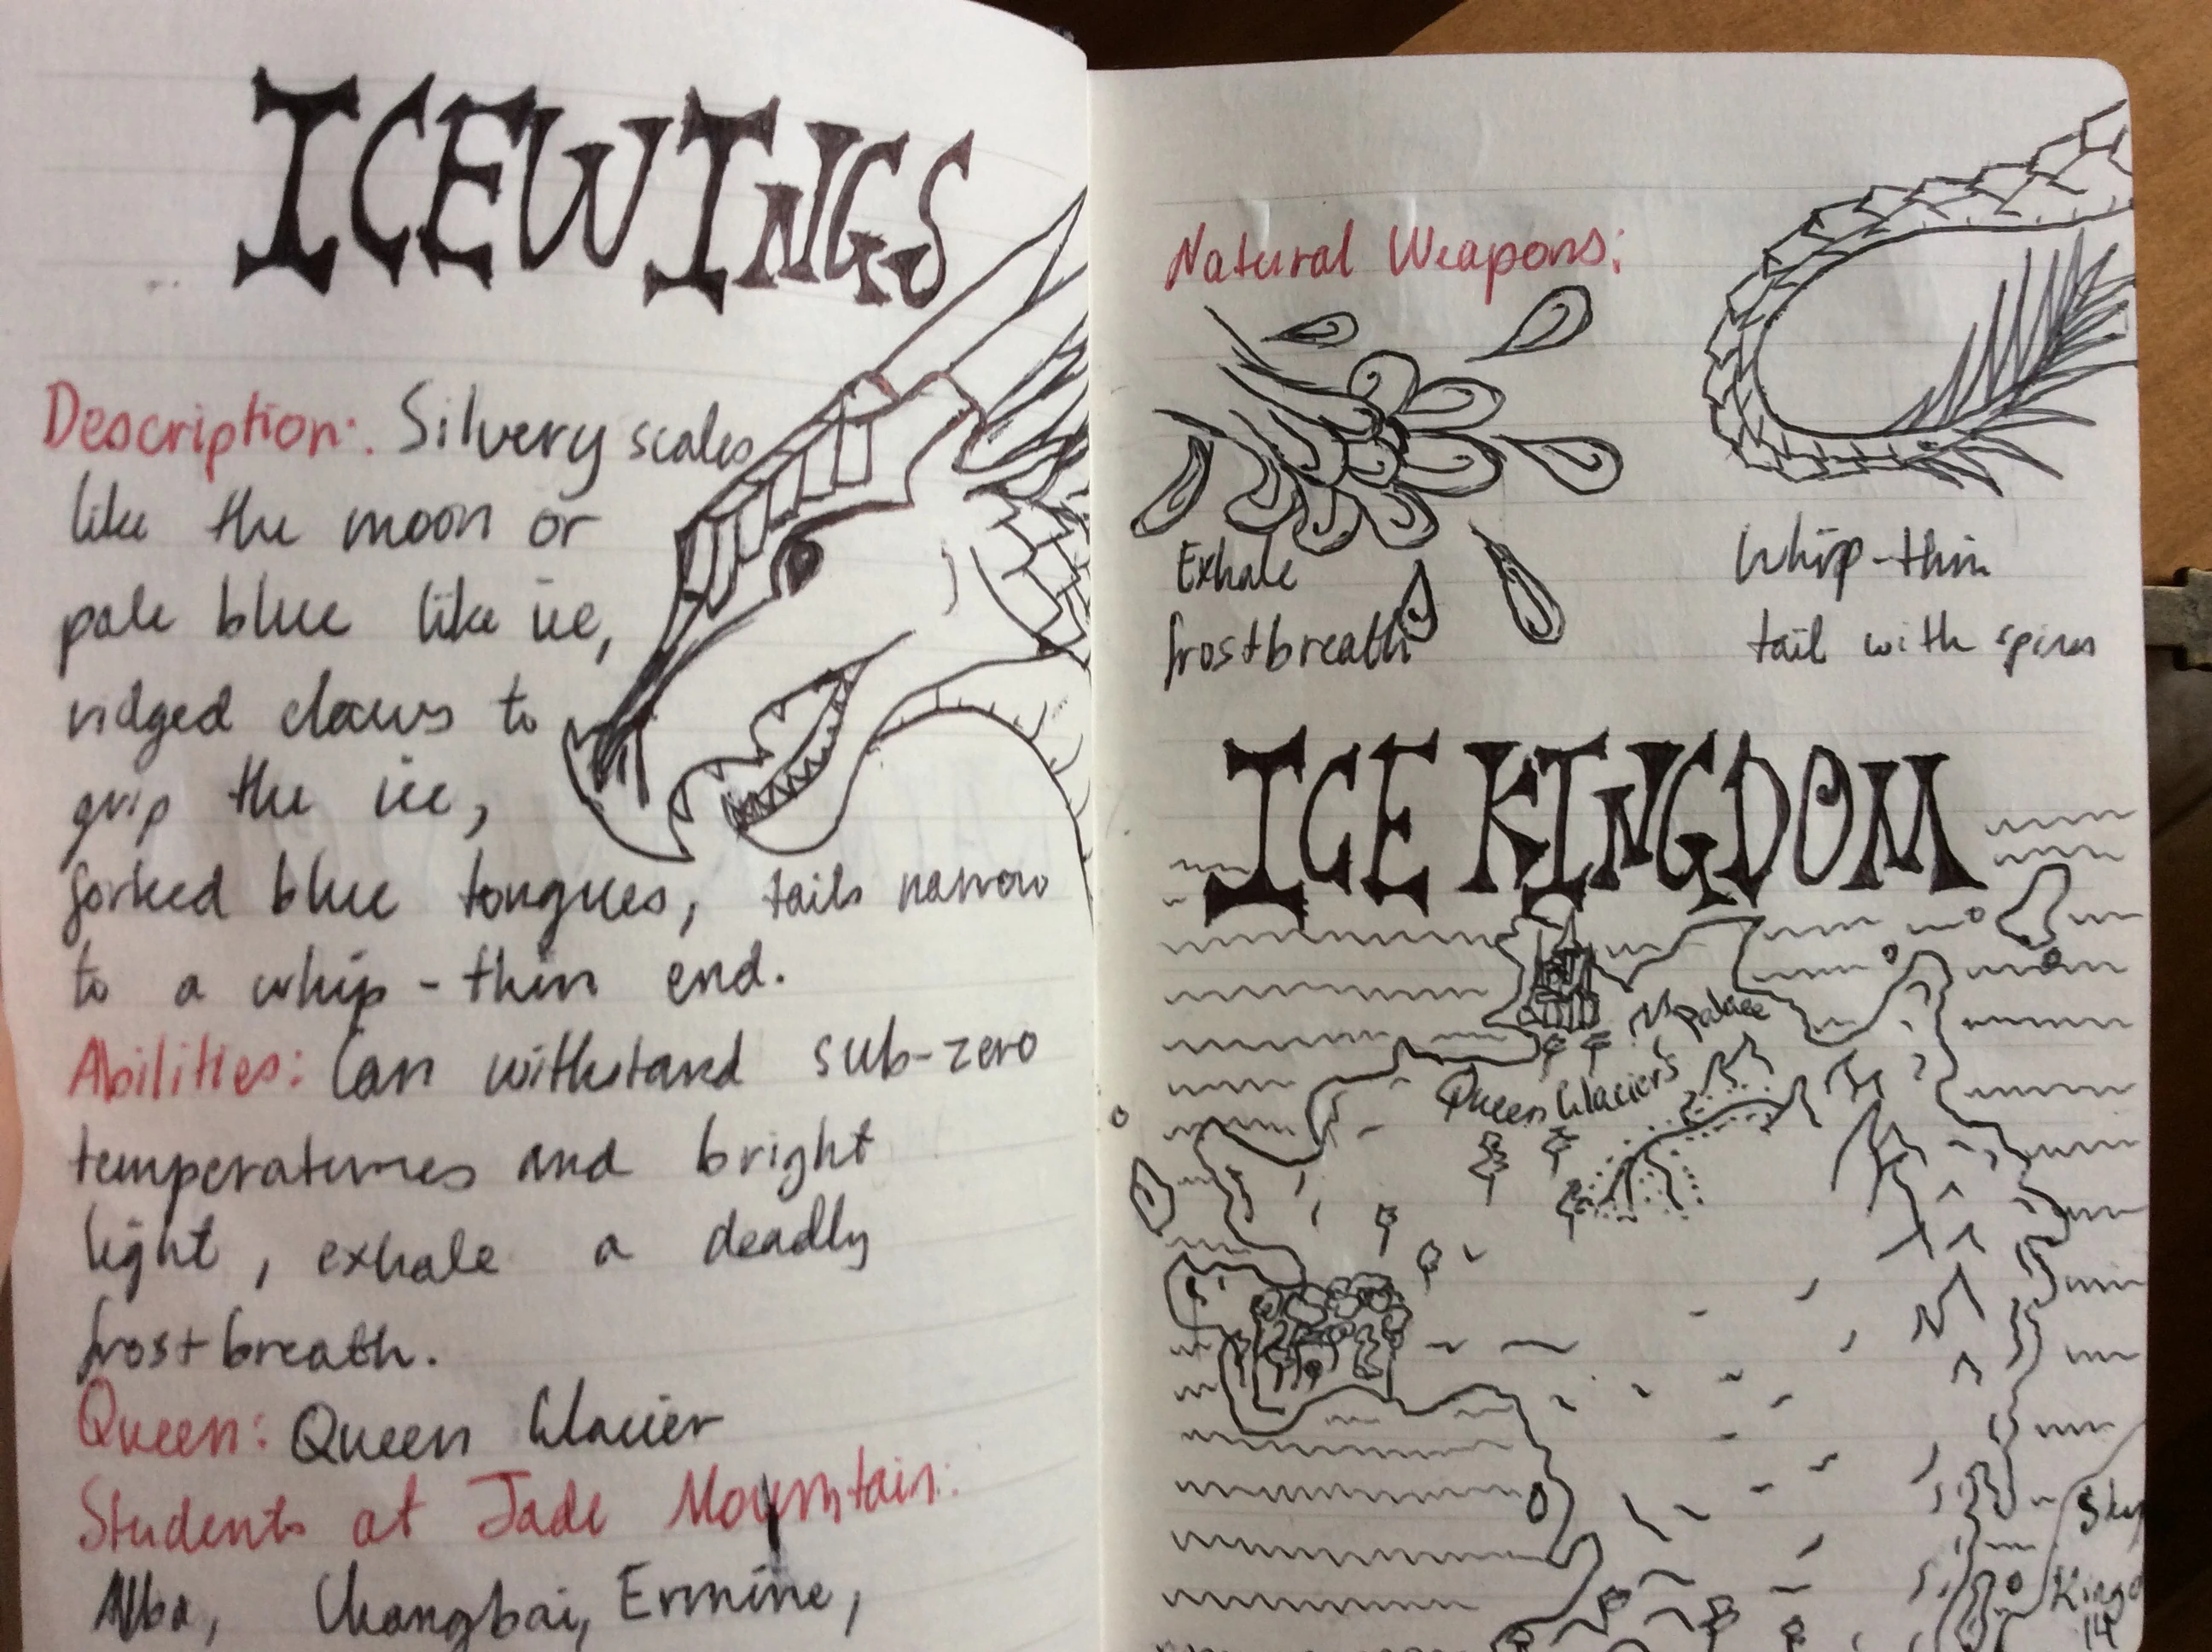 ICEWINGS
Description: Silvery scales
like the moon or
pale blue like ice,
ridged claws to
grip the ice,
forked blue tongues, tails narrow
to a whip-thin end.
Abilities: Can withstand sub-zero
temperatures and bright
light, exhale a deadly
frostbreath.
Queen: Queen Glacier
Students at Jade Mountain:
Alba, Changbai, Ermine,
Natural Weapons:
Exhale
frostbreath
Whip-thin
tail with spines
ICE KINGDOM
Queen Glacier's
palace
Sky
Kingd
14